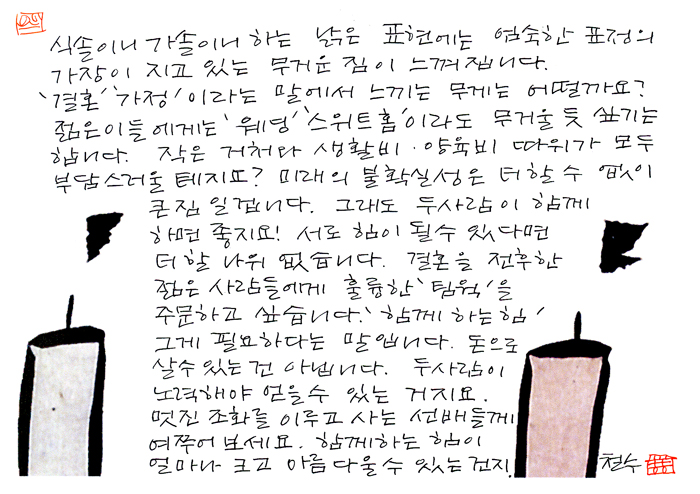 식솔이니 가솔이니 하는 낡은 표현에는 엄숙한 표정의
가장이 지고 있는 무거운 짐이 느껴집니다.
'결혼' '가정'이라는 말에서 느끼는 무게는 어떨까요?
젊은이들에게는 '웨딩' '스위트홈'이라도 무거울 듯 싶기는
합니다. 작은 거처와 생활비·양육비 따위가 모두
부담스러울 테지요? 미래의 불확실성은 더할 수 없이
큰 짐일겝니다. 그래도 두사람이 함께
하면 좋지요! 서로 힘이 될수 있다면
더할 나위 없습니다. 결혼을 전후한
젊은 사람들에게 훌륭한 '팀웍'을
주문하고 싶습니다. '함께 하는 힘'
그게 필요하다는 말입니다. 돈으로
살수 있는 건 아닙니다. 두사람이
노력해야 얻을수 있는 거지요.
멋진 조화를 이루고 사는 선배들께
여쭈어 보세요. 함께하는 힘이
얼마나 크고 아름다울수 있는건지! 철수